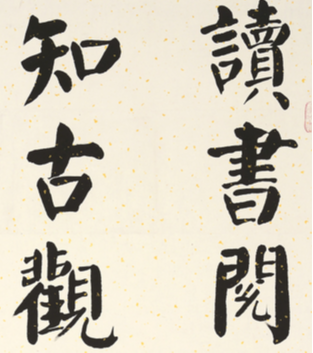 讀書閱
知古觀